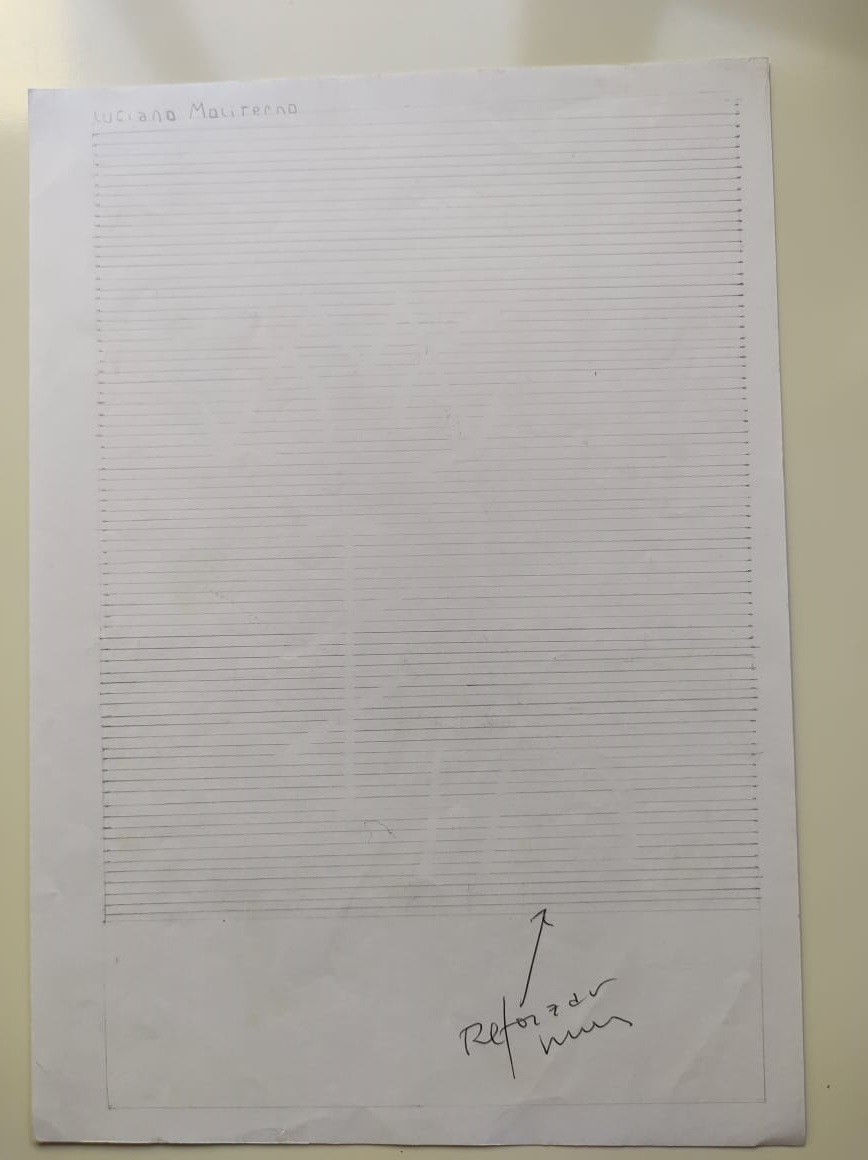 Luciano Moliterno
Reforzar